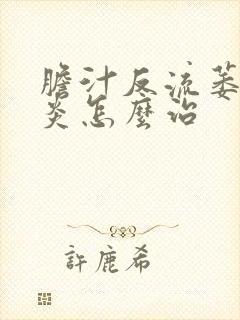 膽汁反流萎
炎怎麼治
許鹿希